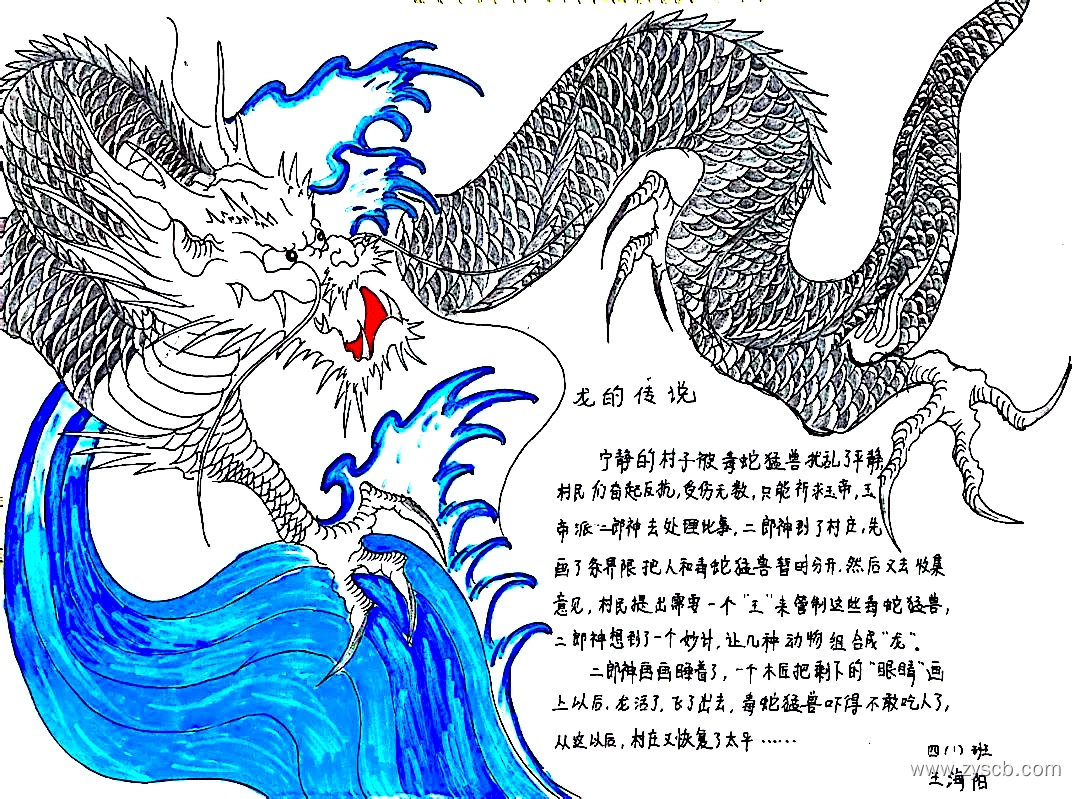 龙的传说
宁静的村子被毒蛇猛兽扰乱了平静
村民们奋起反抗,受伤无数,只能祈求玉帝,玉
帝派二郎神去处理此事,二郎神到了村庄,先
画了条界限把人和毒蛇猛兽暂时分开.然后又去收集
意见,村民提出需要一个“王”来管制这些毒蛇猛兽,
二郎神想到了一个妙计,让几种动物组合成“龙”。
二郎神画画睡着了,一个木匠把剩下的“眼睛”画
上以后.龙活了,飞了出去,毒蛇猛兽吓得不敢吃人了,
从这以后,村庄又恢复了太平……
四(1)班
王海阳
www.zyscb.com